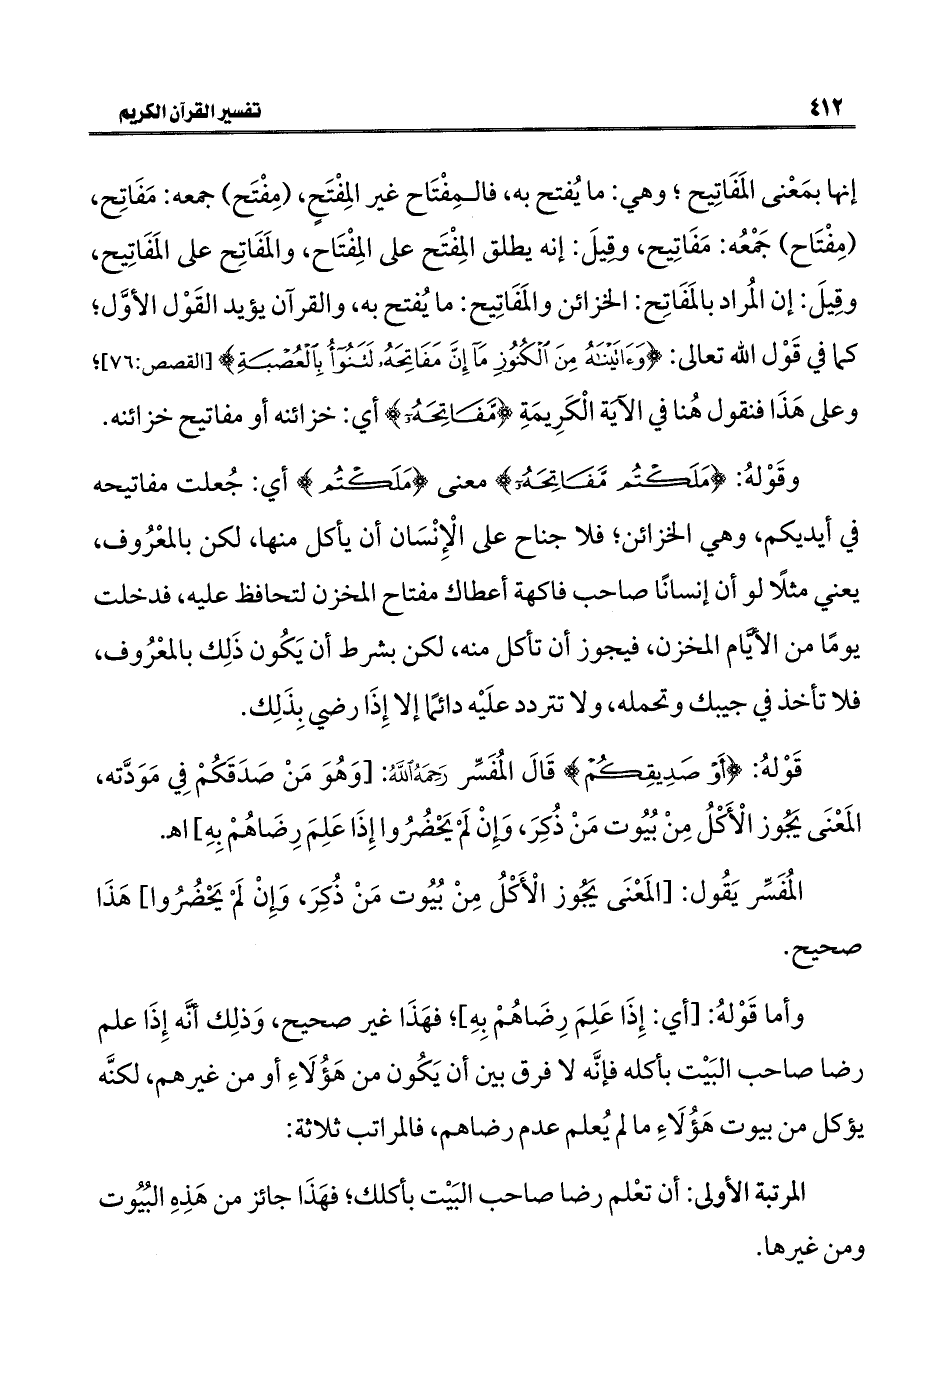 ٤١٢ تفسير القرآن الكريم
إنها بمَعْنى المَفَاتِيح ؛ وهي: ما يُفتح به، فالـمِفْتَاح غير المِفْتَحِ، (مِفْتَح) جمعه: مَفَاتِح،
(مِفْتاح) جَمْعُه: مَفَاتِيح، وقِيلَ: إنه يطلق المِفْتَح على المِفْتَاح، والمَفَاتِح على المَفَاتِيح،
وقِيلَ: إن المُراد بالمَفَاتِح: الخزائن والمَفَاتِيح: ما يُفتح به، والقرآن يؤيد القَوْل الأوَّل؛
كما في قَوْل الله تعالى: ﴿وَءَاتَيْنَٰهُ مِنَ ٱلْكُنُوزِ مَآ إِنَّ مَفَاتِحَهُۥ لَتَنُوٓأُ بِٱلْعُصْبَةِ﴾ [القصص:٧٦]؛
وعلى هَذَا فنقول هُنا في الآيَة الْكَرِيمَةِ ﴿مَّفَاتِحَهُۥٓ﴾ أي: خزائنه أو مفاتيح خزائنه.
وقَوْلهُ: ﴿مَلَكْتُم مَّفَاتِحَهُۥٓ﴾ معنى ﴿مَلَكْتُم﴾ أي: جُعلت مفاتيحه
في أيديكم، وهي الخزائن؛ فلا جناح على الْإِنْسَان أن يأكل منها، لكن بالمَعْرُوف،
يعني مثلًا لو أن إنسانًا صاحب فاكهة أعطاك مفتاح المخزن لتحافظ عليه، فدخلت
يومًا من الأيَّام المخزن، فيجوز أن تأكل منه، لكن بشرط أن يَكُون ذَلِك بالمَعْرُوف،
فلا تأخذ في جيبك وتحمله، ولا تتردد علَيْه دائمًا إلا إِذَا رضي بِذَلِك.
قَوْلهُ: ﴿أَوْ صَدِيقِكُمْ﴾ قَالَ المُفَسِّر رَحِمَهُ اللَّهُ: [وَهُوَ مَنْ صَدَقَكُمْ فِي مَوَدَّته،
المَعْنَى يَجُوز الْأَكْلُ مِنْ بُيُوت مَنْ ذُكِرَ، وَإِنْ لَمْ يَحْضُرُوا إِذَا عَلِمَ رِضَاهُمْ بِهِ] اهـ.
المُفَسِّر يَقُول: [المَعْنَى يَجُوز الْأَكْلُ مِنْ بُيُوت مَنْ ذُكِرَ، وَإِنْ لَمْ يَحْضُرُوا] هَذَا
صحيح.
وأما قَوْلهُ: [أي: إِذَا عَلِمَ رِضَاهُمْ بِهِ]؛ فهَذَا غير صحيح، وَذلِك أنَّه إِذَا علم
رضا صاحب البَيْت بأكله فإنَّه لا فرق بين أن يَكُون من هَؤُلَاءِ أو من غيرهم، لكنَّه
يؤكل من بيوت هَؤُلَاءِ ما لم يُعلم عدم رضاهم، فالمراتب ثلاثة:
المرتبة الأولى: أن تعْلم رضا صاحب البَيْت بأكلك؛ فهَذَا جائز من هَذِهِ البُيُوت
ومن غيرها.